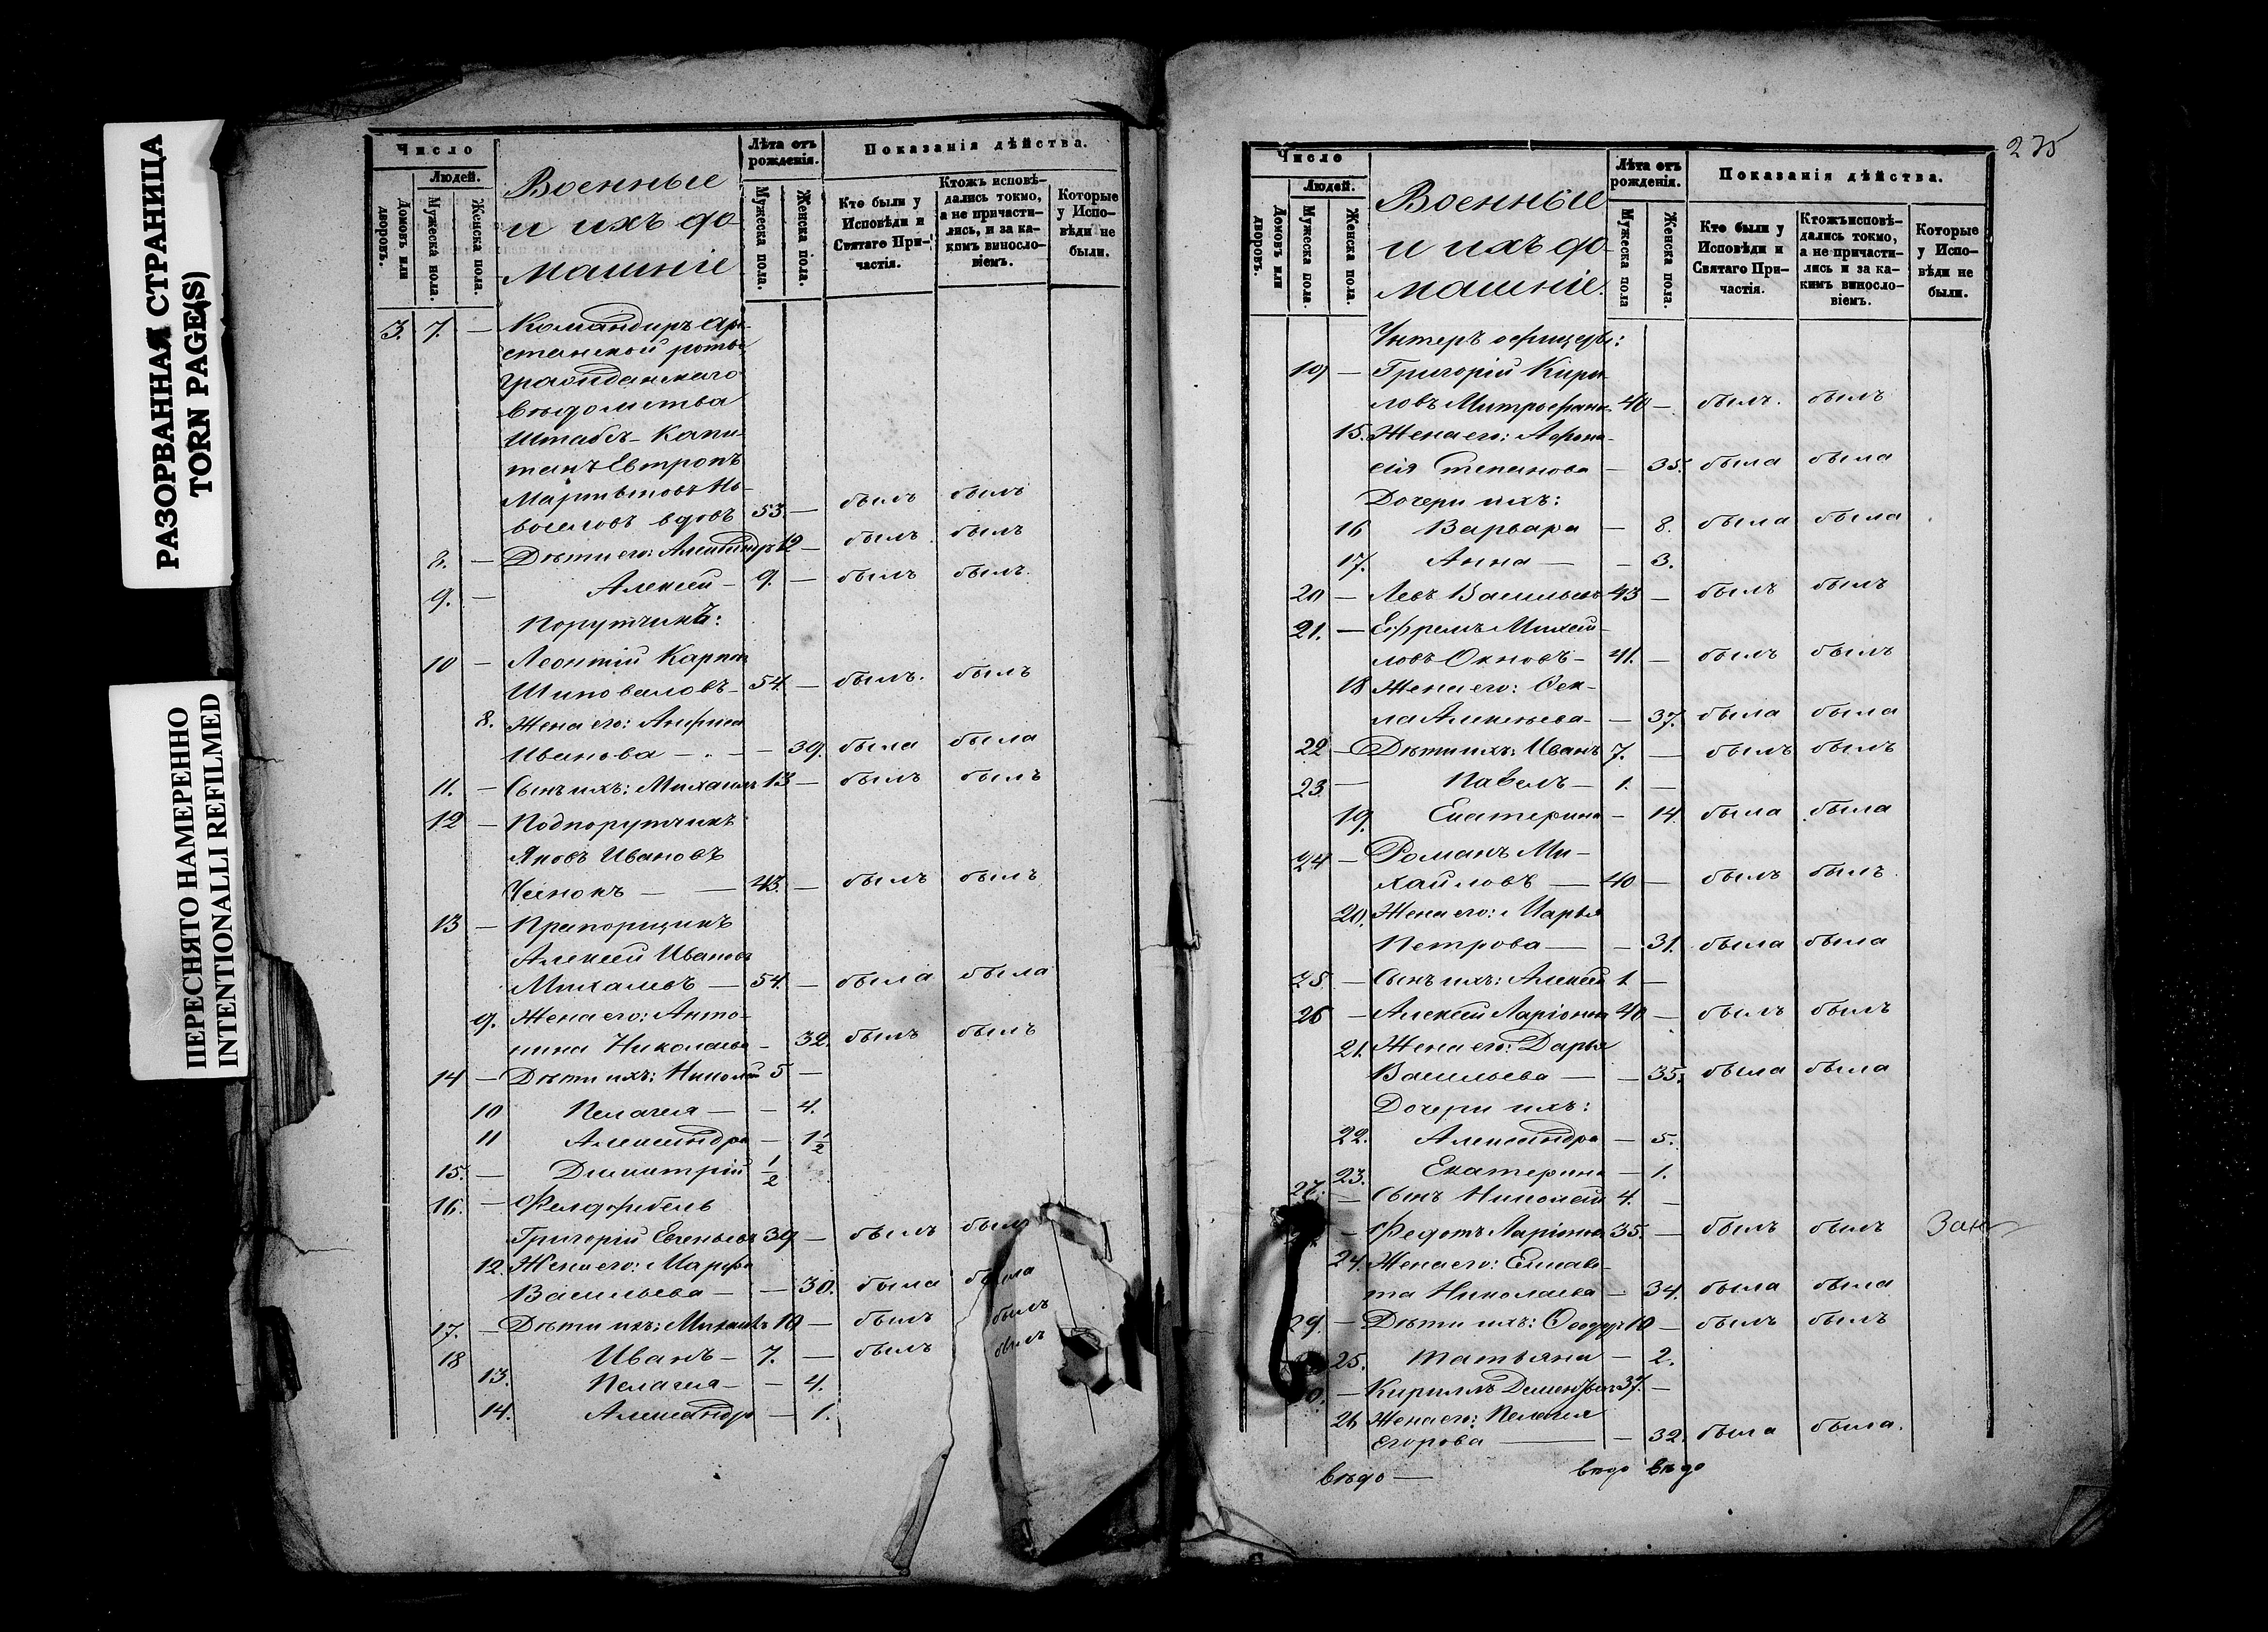 РАЗОРВАННАЯ СТРАНИЦА
TORN PAGE(S)
ПЕРЕСНЯТО НАМЕРЕННО
INTENTIONALLI REFILMED
Число
Людей.
Домовъ или дворовъ.
Мужеска пола.
Женска пола.
Военные
и ихъ до-
машніе
Лѣта отъ рожденія.
Мужеска пола.
Женска пола.
Показанія дѣйства.
Кто были у Исповѣди и Святаго При-частія.
Ктожъ исповѣ-дались токмо, а не причасти-лись, и за ка-кимъ винослo-віемъ.
Которые у Испо-вѣди не были.
3. 7. — Командиръ Аре-
станской роты
Гражданскаго
вѣдомства
Штабсъ-Капи-
танъ Евтропъ
вдовъ 53. — былъ былъ
8. — Дѣти его: Александръ 12 — былъ былъ
9. — Алексѣй — 9. — былъ былъ
Поручикъ:
10 — Леонтій Карповъ
Шиповаловъ — 54. — былъ былъ
8. Жена его: Анфиса
Иванова — — 39. была была
11. — Сынъ ихъ: Михаилъ 13 — былъ былъ
12 — Подпоручикъ
Яковъ Ивановъ
— — 43. — былъ былъ
13 — Прапорщикъ
Алексѣй Ивановъ
Михалевъ — 54. — была была
9. Жена его: Анто-
нина Николаева — 32. былъ былъ
14 — Дѣти ихъ: Николай 5 —
10 Пелагея — — 4.
11 Александра — 1½
15. — Димитрій ½
16. — Фелдфебель
Григорій Евгеньевъ 39 — былъ былъ
12. Жена его: Марфа
Васильева — — 30. была была
17. — Дѣти ихъ: Михаилъ 10 — былъ былъ
18 Иванъ — 7. — былъ былъ
13. Пелагея — — 4.
14. Александра — 1.
275
Число
Людей.
Домовъ или дворовъ.
Мужеска пола.
Женска пола.
Военные
и ихъ до-
машніе.
Лѣта отъ рожденія.
Мужеска пола
Женска пола.
Показанія дѣйства.
Кто были у Исповѣди и Святаго При-частія.
Ктожъ исповѣ-дались токмо, а не причасти-лись и за ка-кимъ винослo-віемъ.
Которые у Испо-вѣди не были.
Унтеръ офицеры:
19 — Григорій Кири-
ловъ Митрофановъ 40 — былъ. былъ
15. Жена его: Афона-
сія Степанова — 35. была была
Дочери ихъ:
16 Варвара — 8. была была
17. Анна — — 3.
20 — Левъ Васильевъ 43 — былъ былъ
21. — Ефремъ Михай-
ловъ Окновъ — 41. — былъ былъ
18 Жена его: Ѳек-
ла Алексѣева — — 37. была была
22 — Дѣти ихъ: Иванъ 7. — былъ былъ
23. — Павелъ — 1. —
19. Екатерина — 14. была была
24 — Романъ Ми-
хайловъ — 40 — былъ былъ
20. Жена его: Марья
Петрова — — 31. была была
25. — Сынъ ихъ: Алексѣй 1 —
26 — Алексѣй Ларіоновъ 40 — былъ былъ
21. Жена его: Дарья
Васильева — — 35. была была
Дочери ихъ:
22. Александра — 5.
23. Екатерина — 1.
27. — Сынъ Николай 4. —
— Федотъ Ларіоновъ 35. — былъ былъ
24. Жена его: Елисаве-
та Николаева — 34. была была
29. — Дѣти ихъ: Ѳеодоръ 10 — былъ былъ
25. Татьяна — 2.
0. — Кириллъ Дементьевъ 37. —
26 Жена его: Пелагея
Егорова — — 32. была была.